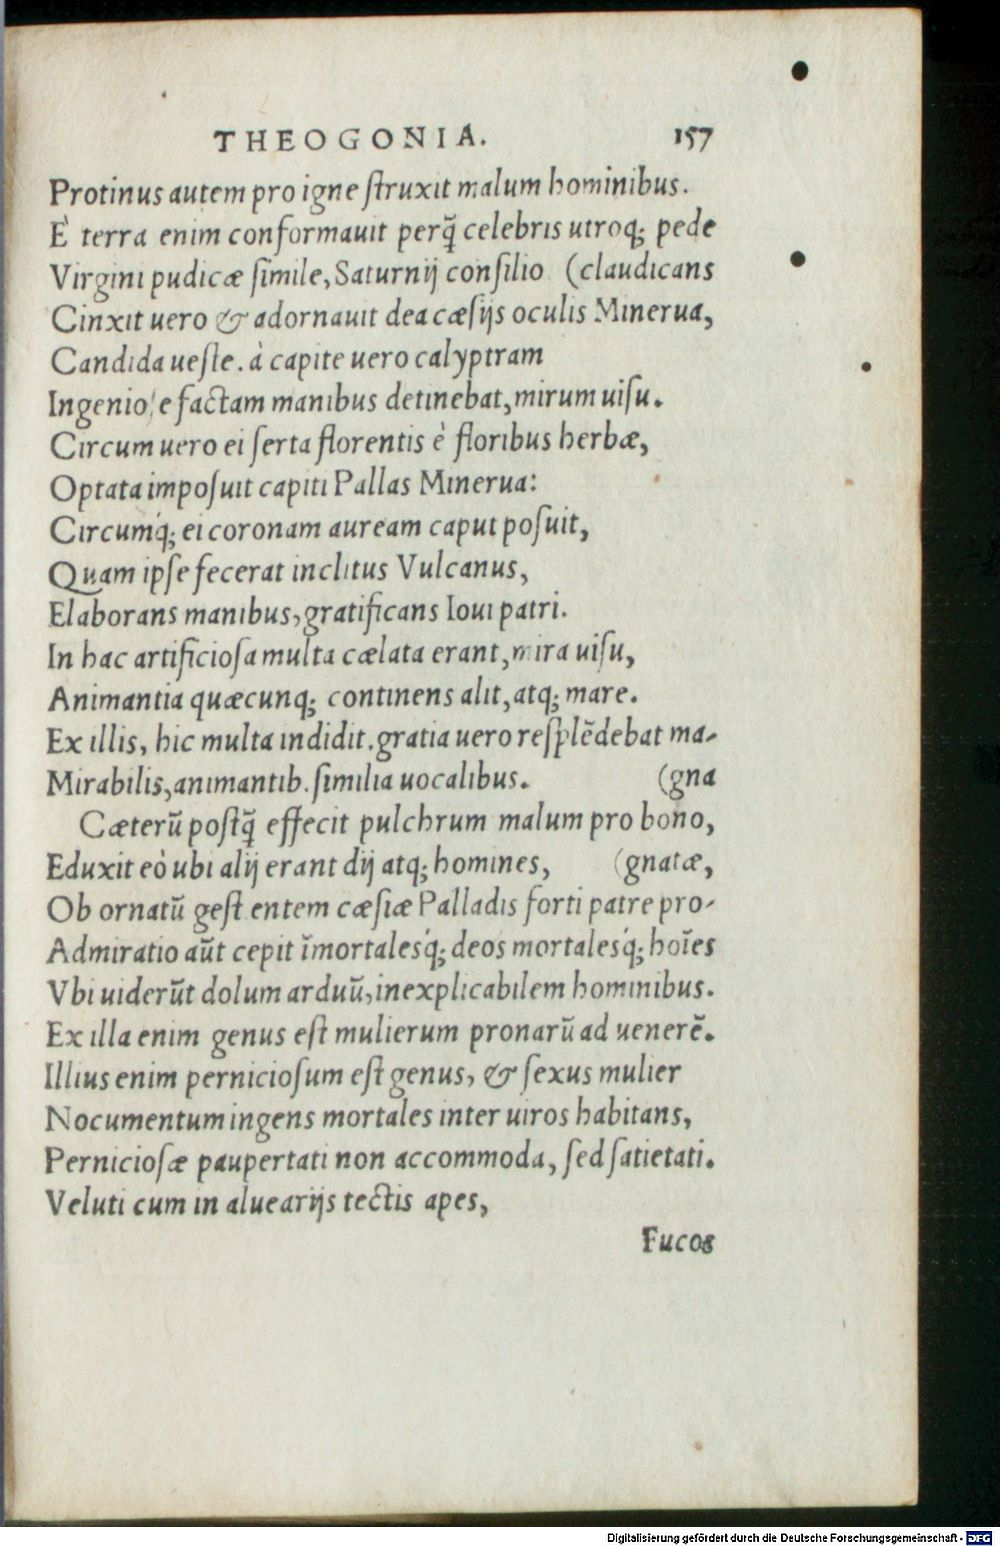 THEOGONIA. 157
Protinus autem pro igne ſtruxit malum hominibus.
E̍ terra enim conformauit perq̃ celebris utroq; pede
Virgini pudicæ ſimile, Saturnij conſilio (claudicans
Cinxit uero & adornauit dea cæſijs oculis Minerua,
Candida ueſte. à capite uero calyptram
Ingenioſe factam manibus detinebat, mirum uiſu.
Circum uero ei ſerta florentis è floribus herbæ,
Optata impoſuit capiti Pallas Minerua:
Circumq́; ei coronam auream caput poſuit,
Quam ipſe fecerat inclitus Vulcanus,
Elaborans manibus, gratificans Ioui patri.
In hac artificioſa multa cælata erant, mira uiſu,
Animantia quæcunq; continens alit, atq; mare.
Ex illis, hic multa indidit. gratia uero reſplẽdebat ma-
Mirabilis, animantib. ſimilia uocalibus. (gna
Cæterũ poſtq̃ effecit pulchrum malum pro bono,
Eduxit eò ubi alij erant dij atq; homines, (gnatæ,
Ob ornatũ geſtentem cæſiæ Palladis forti patre pro-
Admiratio aũt cepit ĩmortalesq́; deos mortalesq́; hoĩes
Vbi uiderũt dolum arduũ, inexplicabilem hominibus.
Ex illa enim genus eſt mulierum pronarũ ad uenerẽ.
Illius enim pernicioſum eſt genus, & ſexus mulier
Nocumentum ingens mortales inter uiros habitans,
Pernicioſæ paupertati non accommoda, ſed ſatietati.
Veluti cum in aluearijs tectis apes,
Fucos
Digitalisierung gefördert durch die Deutsche Forschungsgemeinschaft - DFG